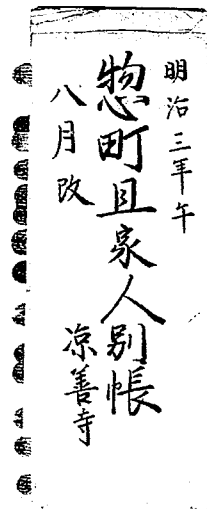 明治三年午
惣町旦家人別帳
八月改
凉善寺